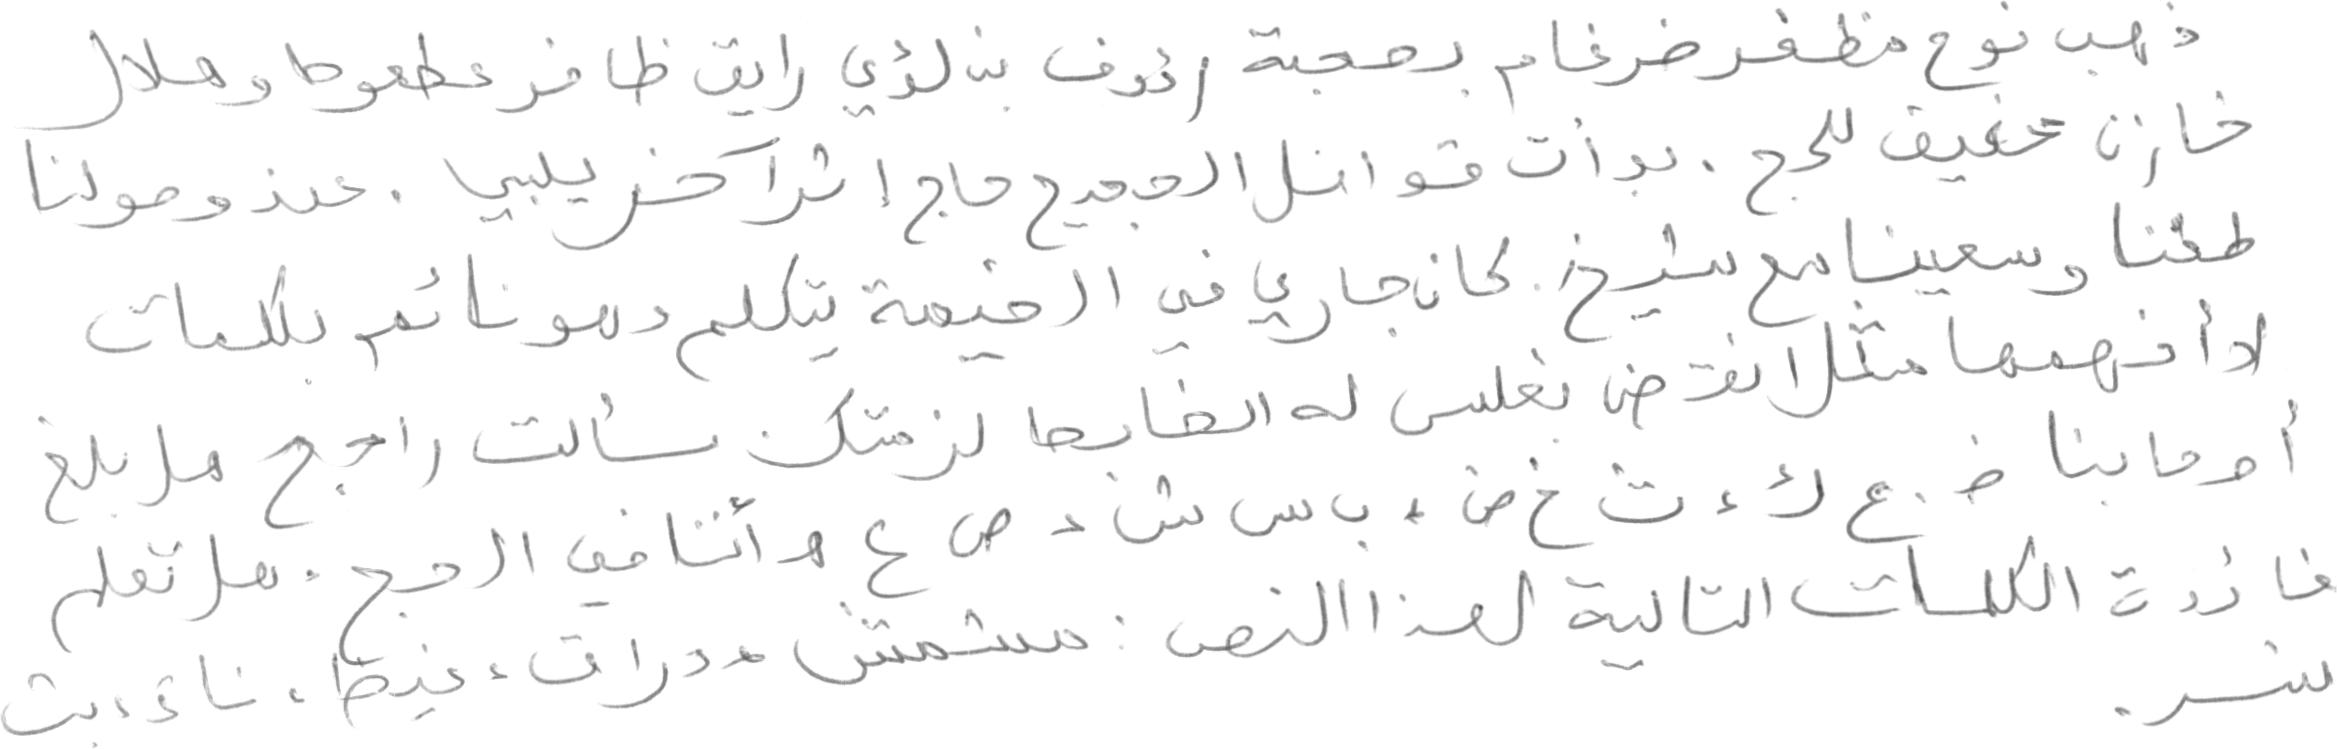 ذهب نوح مظفر ضرغام بصحبة رؤوف بن لؤي رايق ظافر عطعوط وهلال
خازن عفيف للحج. بدأت قوافل الحجيج حاج إثر آخر يلبي. عند وصولنا
طفنا وسعينا مع شيخ. كان جاري في الخيمة يتكلم وهو نائم بكلمات
لا أفهمها مثل انقرض بغلس له الضابط لزمتك سألت راجح هل بلغ
أوحابنا ض. ع ك، ث خ ض، ب س ش د ص ع ه أثنا في الحج. هل تعلم
فائدة الكلمات التالية لهذا النص: مشمش، دراق، غيظ، ناء، بث
نسر.